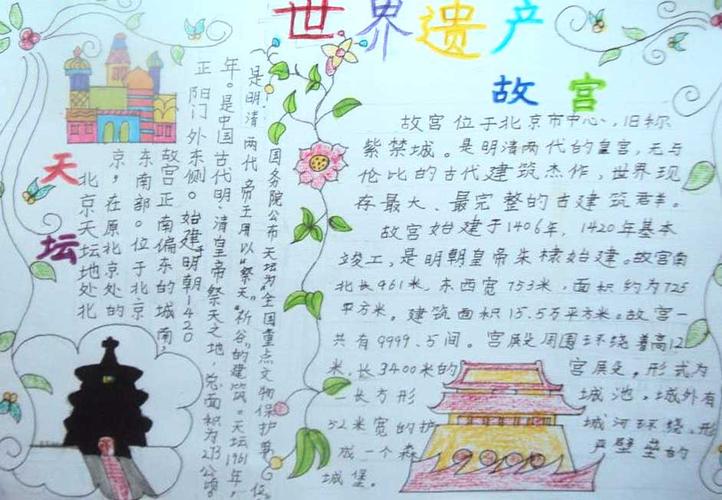 世界遗产
天坛
北京天坛地处北
京,在原北京处的
东南部。位于北京
故宫正南偏东的城南,
正阳门外东侧。始建于明朝1420
年。是中国古代明、清皇帝祭天之地,总面积为273公顷。
是明清两代帝王用以“祭天”“祈谷”的建筑。天坛1961年,
国务院公布天坛为“全国重点文物保护单位。
故宫
故宫位于北京市中心、旧称
紫禁城。是明清两代的皇宫,无与
伦比的古代建筑杰作,世界现
存最大、最完整的古建筑群。
故宫始建于1406年,1420年基本
竣工,是明朝皇帝朱棣始建。故宫南
北长961米,东西宽753米,面积约为725
平方米。建筑面积15.5万平方米。故宫一
共有9999.5间。宫殿周围环绕着高12
米,长3400米的宫殿,形式为
一长方形城池,城外有
52米宽的护城河环绕,形
成一个森严壁垒的
城堡。